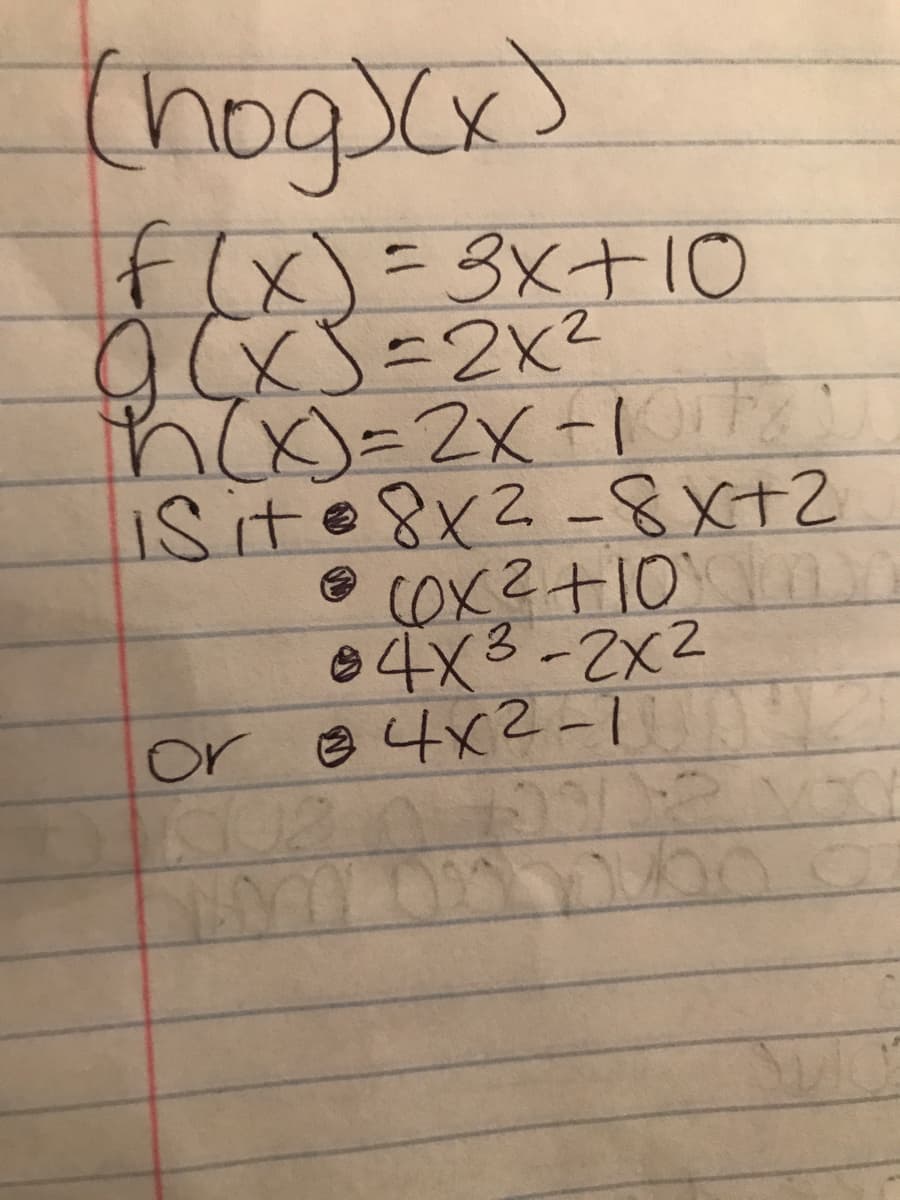 (hog)(x)
f(x) = 3x+10
g(x) = 2x²
h(x) = 2x -1
is it • 8x2 - 8x+2
• 6x2+10
• 4x3 -2x2
or • 4x2-1